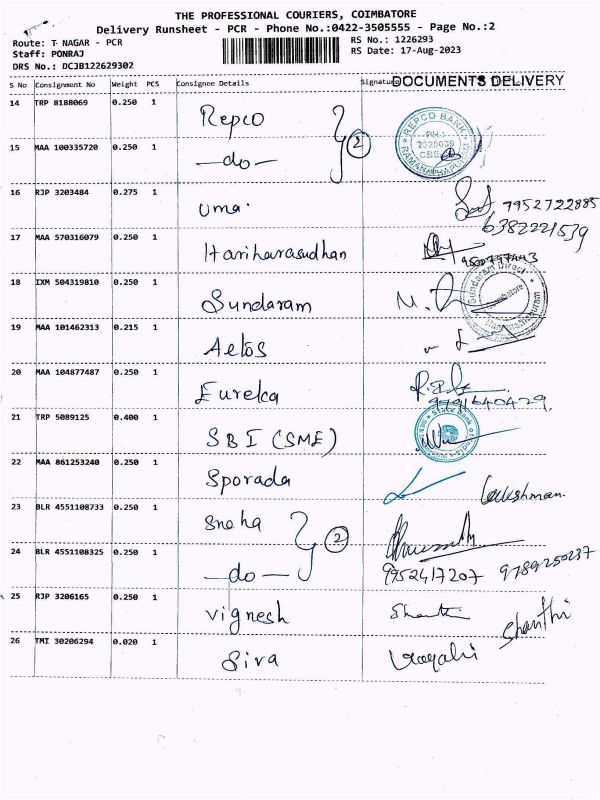 THE PROFESSIONAL COURIERS, COIMBATORE
Delivery Runsheet - PCR - Phone No.:0422-3505555 - Page No.:2
Route: T NAGAR - PCR RS No.: 1226293
Staff: PONRAJ RS Date: 17-Aug-2023
DRS No.: DCJB122629302
S No Consignment No Weight PCS Consignee Details Signature DOCUMENTS DELIVERY
14 TRP 8188069 0.250 1 Repco 2 REPCO BANK
15 MAA 100335720 0.250 1 -do-
16 RJP 3203484 0.275 1 uma. 7952722885
6382221539
17 MAA 570316079 0.250 1 Hariharasudhan
18 IXM 504319810 0.250 1 Sundaram Sundaram Direct
19 MAA 101462313 0.215 1 Aelos
20 MAA 104877487 0.250 1 Eureka
9791640429
21 TRP 5089125 0.400 1 SBI (SME) State Bank of
22 MAA 861253240 0.250 1 Sporada Lakshman.
23 BLR 4551108733 0.250 1 Sneha 2
24 BLR 4551108325 0.250 1 -do- 9952417207 9789250237
25 RJP 3206165 0.250 1 Vignesh Shanthi
26 TMI 30206294 0.020 1 Siva